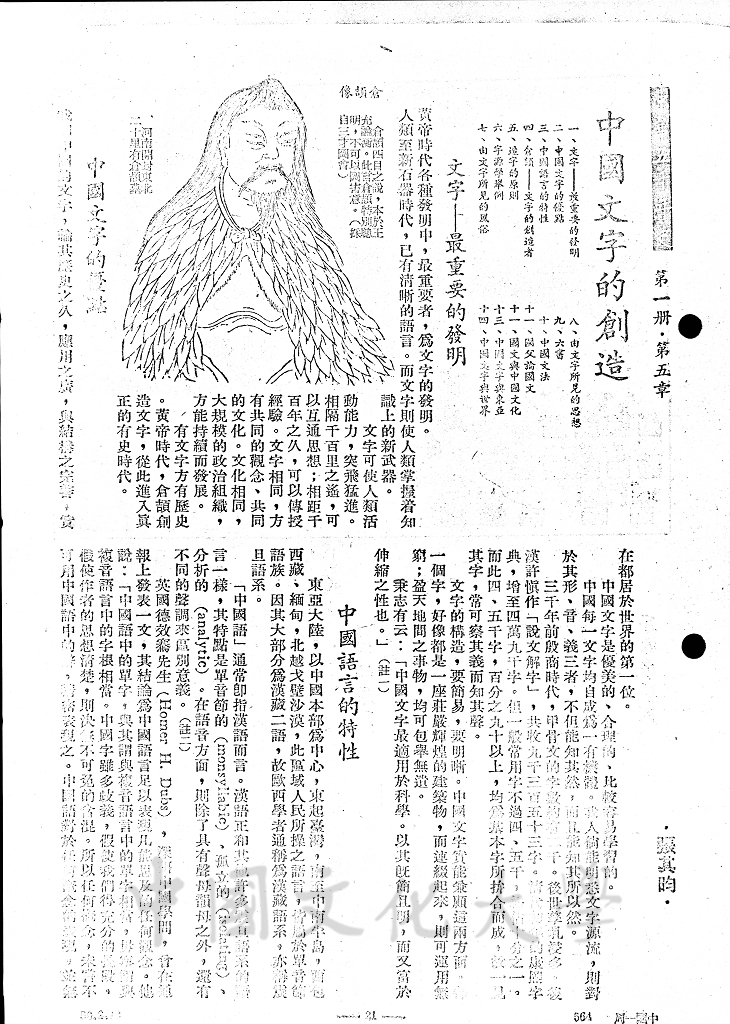 第一册・第五章
中國文字的創造
・張其昀・
一、文字——最重要的發明
二、中國文字的優點
三、中國語言的特性
四、倉頡——文字的創造者
五、造字的原則
六、字源學舉例
七、由文字所見的風俗
八、由文字所見的思想
九、六書
十、中國文法
十一、國父論國文
十二、國文與中國文化
十三、中國文字與東亞
十四、中國文字與世界
文字——最重要的發明
黃帝時代各種發明中，最重要者，為文字的發明。
人類至新石器時代，已有清晰的語言。而文字則使人類掌握着知
識上的新武器。
文字可使人類活
動能力，突飛猛進。
相隔千百里之遙，可
以互通思想；相距千
百年之久，可以傳授
經驗。文字相同，方
有共同的觀念、共同
的文化。文化相同，
大規模的政治組織，
方能持續而發展。
有文字方有歷史
。黃帝時代，倉頡創
造文字，從此進入眞
正的有史時代。
倉頡像
倉頡四目之說，本於王
充論衡。此言倉頡特別聰
明，不可以圖害意。（採
自三才圖會）
、河南開封東北
二十里有倉頡墓
中國文字的優點
文字，論其歷史之久，應用之廣，與結構之完善，實
在都居於世界的第一位。
中國文字是優美的、合理的、比較容易學習的。
中國每一文字均自成為一有機體。吾人倘能明悉文字源流，則對
於其形、音、義三者，不但能知其然，而且能知其所以然。
三千年前殷商時代，甲骨文的字數約
漢許慎作「說文解字」，共收九千三百五十三字。
典，增至四萬九千字。但一般常用字不過四、五千，
而此四、五千字，百分之九十以上，均為基本字所拼合而成，
其字，常可察其義而知其聲。
文字的構造，要簡易，要明晰。中國文字實能兼顧這兩方面。
一個字，好像都是一座莊嚴輝煌的建築物，而連綴起來，則可運用無
窮；盈天地間之事物，均可包舉無遺。
秉志有云：「中國文字最適用於科學。以其旣簡且明，而又富於
伸縮之性也。」（註一）
中國語言的特性
東亞大陸，以中國本部為中心，東起臺灣，南至中南半島，西包
西藏、緬甸，北越戈壁沙漠，此區域人民所操之語言，皆屬於單音節
語族。因其大部分為漢藏二語，故歐西學者通稱為漢藏語系，亦稱震
旦語系。
「中國語」通常卽指漢語而言。漢語正和其他許多震旦語系的語
言一樣，其特點是單音節的（monsyllabic）、孤立的（isolating）、
分析的（analytic）。在語音方面，則除了具有聲母韻母之外，還有
不同的聲調來區別意義。（註二）
英國德效騫先生（Homer H. Dubs），深於中國學問，曾在
報上發表一文，其結論為中國語言足以表現凡能思及的任何觀念。他
說：「中國語中的單字，與其謂與複音語言中的單字相當，毋寧謂與
複音語言中的字根相當。中國字雖多歧義，假使我們得充分的
假使作者的思想清楚，則決無不可免的含混。所以任何概念，未嘗不
可用中國語中的
表現之。中國語對於任何
一31一
564
中國一周